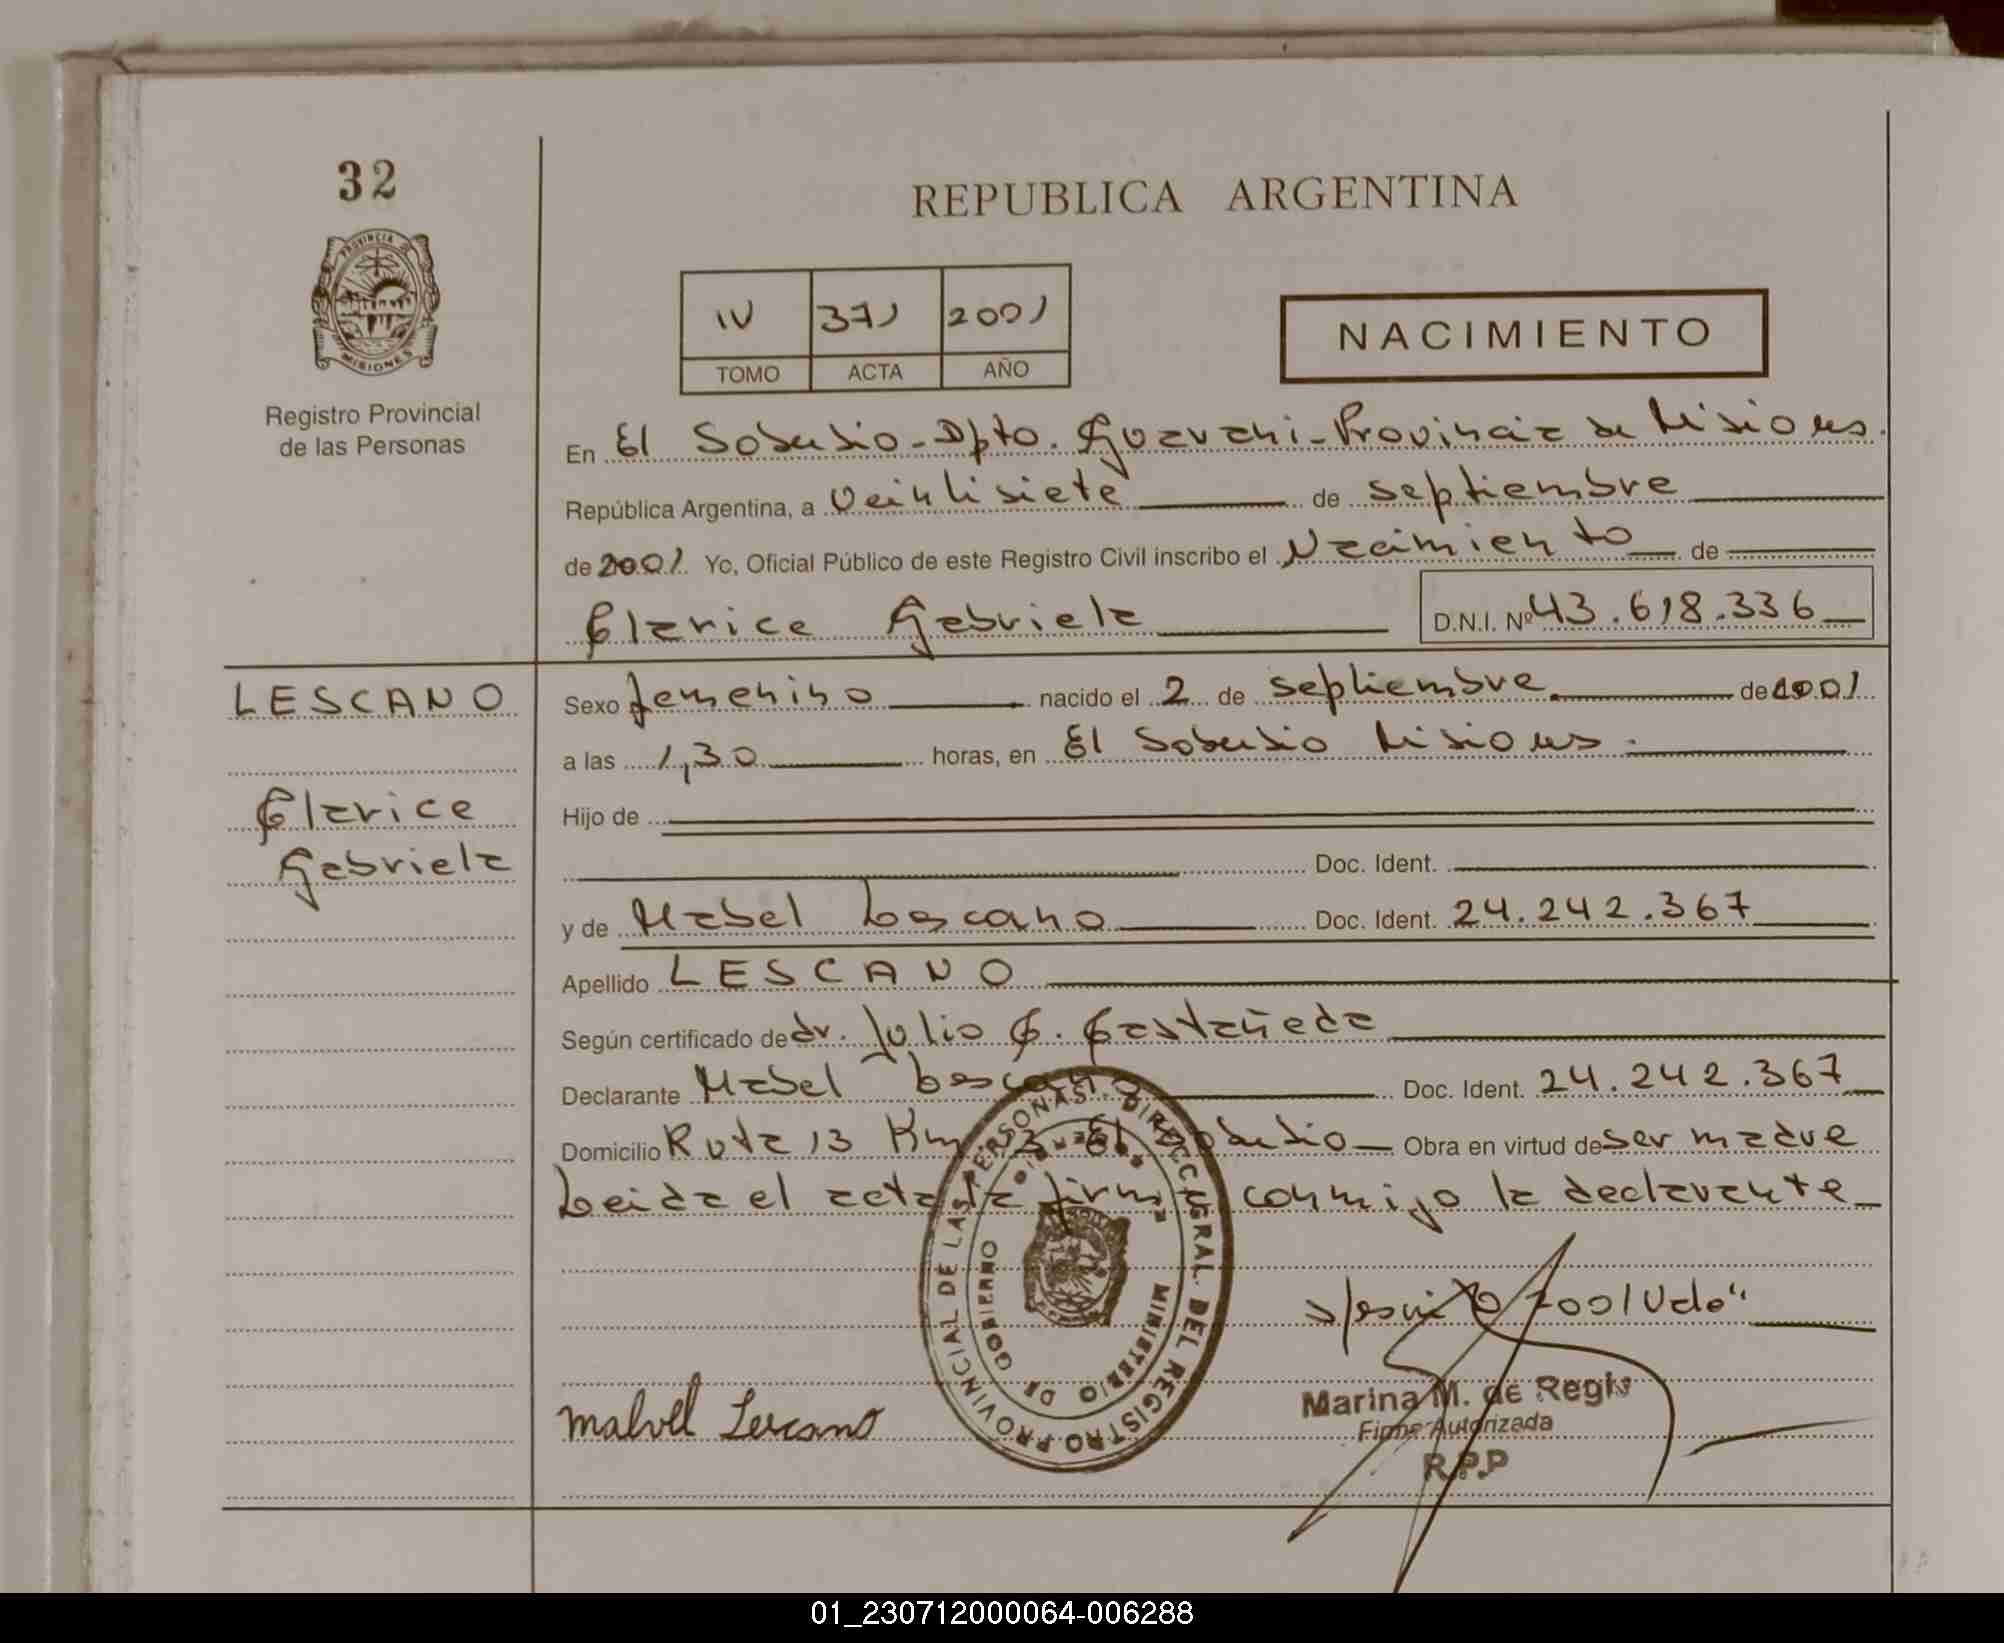 32
REPUBLICA ARGENTINA
PROVINCIA DE
MISIONES
Registro Provincial
de las Personas
IV 371 2001
TOMO ACTA AÑO
NACIMIENTO
En El Soberbio - Dpto. Guarani - Provincia de Misiones.
República Argentina, a Veintisiete de Septiembre
de 2001. Yo, Oficial Público de este Registro Civil inscribo el Nacimiento de
Clarice Gabriela D.N.I. Nº 43.618.336
LESCANO
Clarice
Gabriela
Sexo femenino nacido el 2 de Septiembre de 2001
a las 1,30 horas, en El Soberbio Misiones.
Hijo de
Doc. Ident.
y de Mabel Lescano Doc. Ident. 24.242.367
Apellido LESCANO
Según certificado de dr. Julio C. Castañeda
Declarante Mabel Lescano Doc. Ident. 24.242.367
Domicilio Ruta 13 Km 3 El Soberbio Obra en virtud de ser madre
Leida el acta la firma conmigo la declarante
DIRECC. GRAL. DEL REGISTRO PROVINCIAL DE LAS PERSONAS
MINISTERIO DE GOBIERNO
2001 Vale"
Malvel Lescano
Marina M. de Regis
Firma Autorizada
R.P.P
01_230712000064-006288